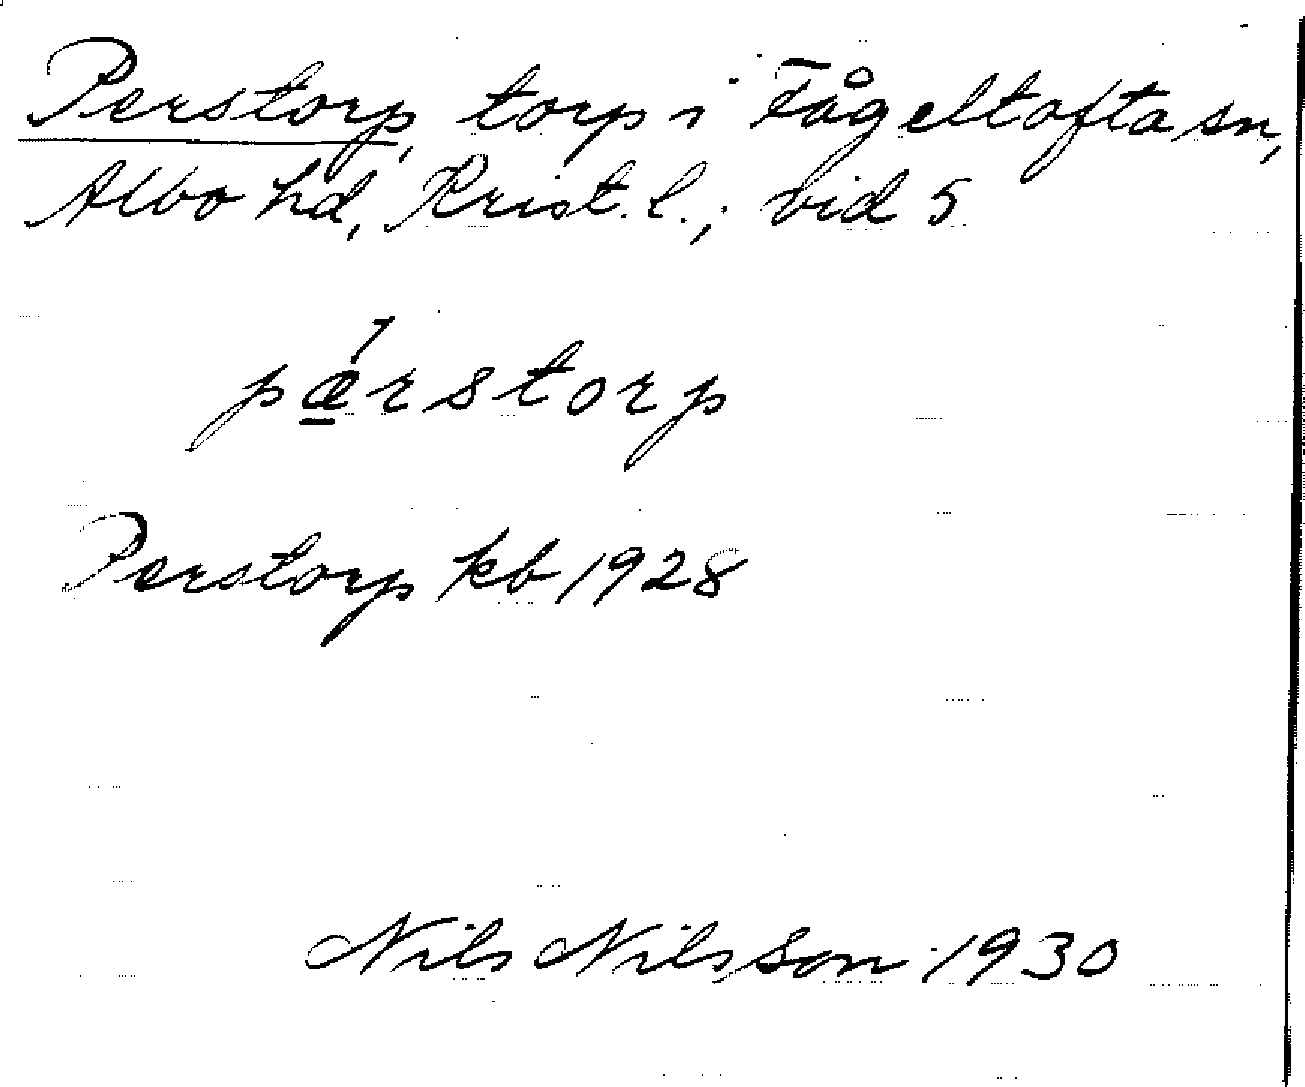 Perstorp, torp i Fågeltofta sn,
Albo hd, Krist. l.; vid 5
pǽ̲rstorp
Perstorp kb 1928
Nils Nilsson 1930